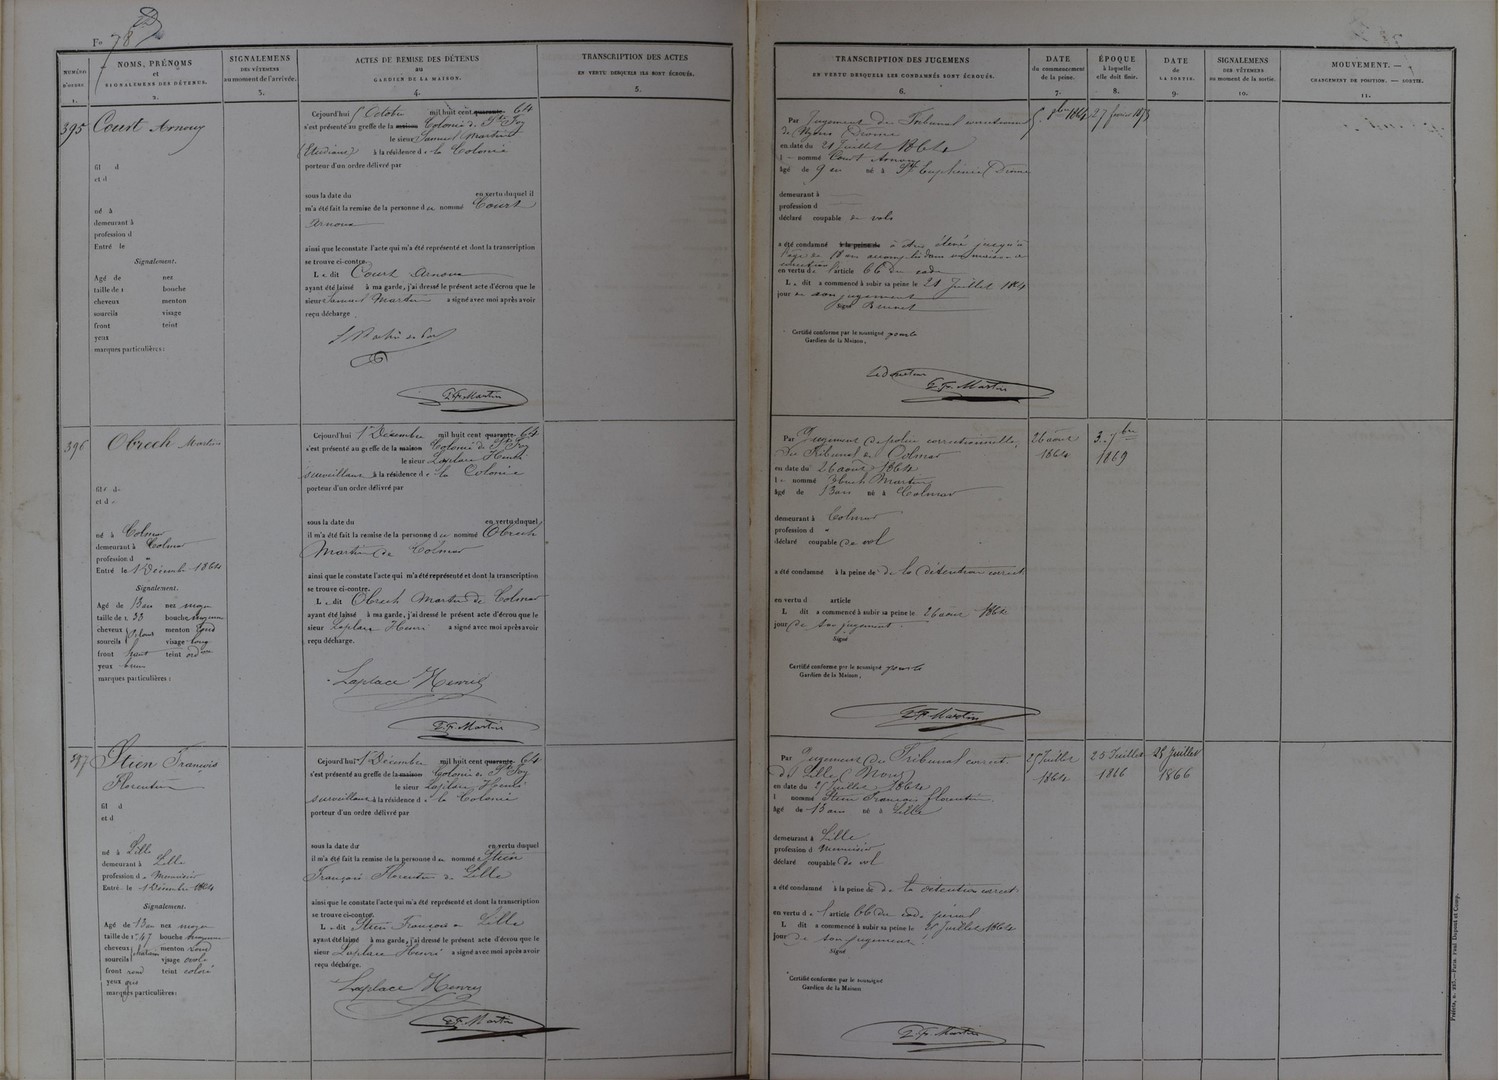 Fo 78
NUMÉRO D'ORDRE 1.
NOMS, PRÉNOMS et SIGNALEMENS DES DÉTENUS. 2.
SIGNALEMENS DES VÊTEMENS au moment de l'arrivée. 3.
ACTES DE REMISE DES DÉTENUS au GARDIEN DE LA MAISON. 4.
TRANSCRIPTION DES ACTES EN VERTU DESQUELS ILS SONT ÉCROUÉS. 5.
TRANSCRIPTION DES JUGEMENS EN VERTU DESQUELS LES CONDAMNÉS SONT ÉCROUÉS. 6.
DATE du commencement de la peine. 7.
ÉPOQUE à laquelle elle doit finir. 8.
DATE de LA SORTIE. 9.
SIGNALEMENS DES VÊTEMENS au moment de la sortie. 10.
MOUVEMENT. — CHANGEMENT DE POSITION. — SORTIE. 11.
395 Court Arnoux
fil d
et d
né à
demeurant à
profession d
Entré le
Signalement.
Agé de nez
taille de 1 bouche
cheveux menton
sourcils visage
front teint
yeux
marques particulières :
Cejourd'hui 5 Octobre mil huit cent quarante 64
s'est présenté au greffe de la maison Colonie de Ste Foy
le sieur Samuel Martin
(Etudiant) à la résidence de la Colonie
porteur d'un ordre délivré par
sous la date du en vertu duquel il
m'a été fait la remise de la personne du nommé Court
Arnoux
ainsi que le constate l'acte qui m'a été représenté et dont la transcription
se trouve ci-contre.
Le dit Court Arnoux
ayant été laissé à ma garde, j'ai dressé le présent acte d'écrou que le
sieur Samuel Martin a signé avec moi après avoir
reçu décharge.
P. F. Martin
Par Jugement du Tribunal correctionnel
de Nyons Drôme
en date du 21 Juillet 1864
l nommé Court Arnoux
âgé de 9 ans né à Ste Euphémie (Drôme
demeurant à
profession d
déclaré coupable de vols
a été condamné à la peine de à être élevé jusqu'à
l'âge de 18 ans dans une maison de
correction
en vertu de l'article 66 du code
Le dit a commencé à subir sa peine le 21 Juillet 1864
jour de son jugement
Signé
Certifié conforme par le soussigné pour le
Gardien de la Maison,
Le Directeur
P. F. Martin
5 8bre 1864
27 février 1873
396 Obrech Martin
fil d
et d
né à Colmar
demeurant à Colmar
profession d "
Entré le 1 Décembre 1864
Signalement.
Agé de 13 ans nez moyen
taille de 1 33 bouche moyenne
cheveux menton rond
sourcils visage long
front haut teint ordre
yeux brun
marques particulières :
Cejourd'hui 1er Décembre mil huit cent quarante 64
s'est présenté au greffe de la maison Colonie de Ste Foy
le sieur Laplace Henri
surveillant à la résidence de la Colonie
porteur d'un ordre délivré par
sous la date du en vertu duquel
il m'a été fait la remise de la personne du nommé Obrech
Martin de Colmar
ainsi que le constate l'acte qui m'a été représenté et dont la transcription
se trouve ci-contre.
Le dit Obrech Martin de Colmar
ayant été laissé à ma garde, j'ai dressé le présent acte d'écrou que le
sieur Laplace Henri a signé avec moi après avoir
reçu décharge.
Laplace Henri
P. F. Martin
Par Jugement de police correctionnelle
du Tribunal de Colmar
en date du 26 août 1864
le nommé Obrech Martin
âgé de 13 ans né à Colmar
demeurant à Colmar
profession d "
déclaré coupable de vol
a été condamné à la peine de de la détention correct.
en vertu d article
L dit a commencé à subir sa peine le 26 août 1864
jour de son jugement.
Signé
Certifié conforme par le soussigné pour le
Gardien de la Maison,
P. F. Martin
26 août 1864
3. 7bre 1869
397 Stien François
Florentin
fil d
et d
né à Lille
demeurant à Lille
profession de Menuisier
Entré le 1 Décembre 1864
Signalement.
Agé de 13 ans nez moyen
taille de 1. 47 bouche moyenne
cheveux châtain menton rond
sourcils visage ovale
front rond teint coloré
yeux gris
marques particulières :
Cejourd'hui 1er Décembre mil huit cent quarante 64
s'est présenté au greffe de la maison Colonie de Ste Foy
le sieur Laplace Henri
surveillant à la résidence de la Colonie
porteur d'un ordre délivré par
sous la date du en vertu duquel
il m'a été fait la remise de la personne du nommé Stien
François Florentin de Lille
ainsi que le constate l'acte qui m'a été représenté et dont la transcription
se trouve ci-contre.
Le dit Stien François de Lille
ayant été laissé à ma garde, j'ai dressé le présent acte d'écrou que le
sieur Laplace Henri a signé avec moi après avoir
reçu décharge.
Laplace Henry
P. F. Martin
Par Jugement du Tribunal correct.
de Lille (Nord)
en date du 25 Juillet 1864
l nommé Stien François Florentin
âgé de 13 ans né à Lille
demeurant à Lille
profession d Menuisier
déclaré coupable de vol
a été condamné à la peine de de la détention correct.
en vertu de l'article 66 du code pénal
L dit a commencé à subir sa peine le 25 Juillet 1864
jour de son jugement
Signé
Certifié conforme par le soussigné
Gardien de la Maison
P. F. Martin
25 Juillet 1864
25 Juillet 1866
25 Juillet 1866